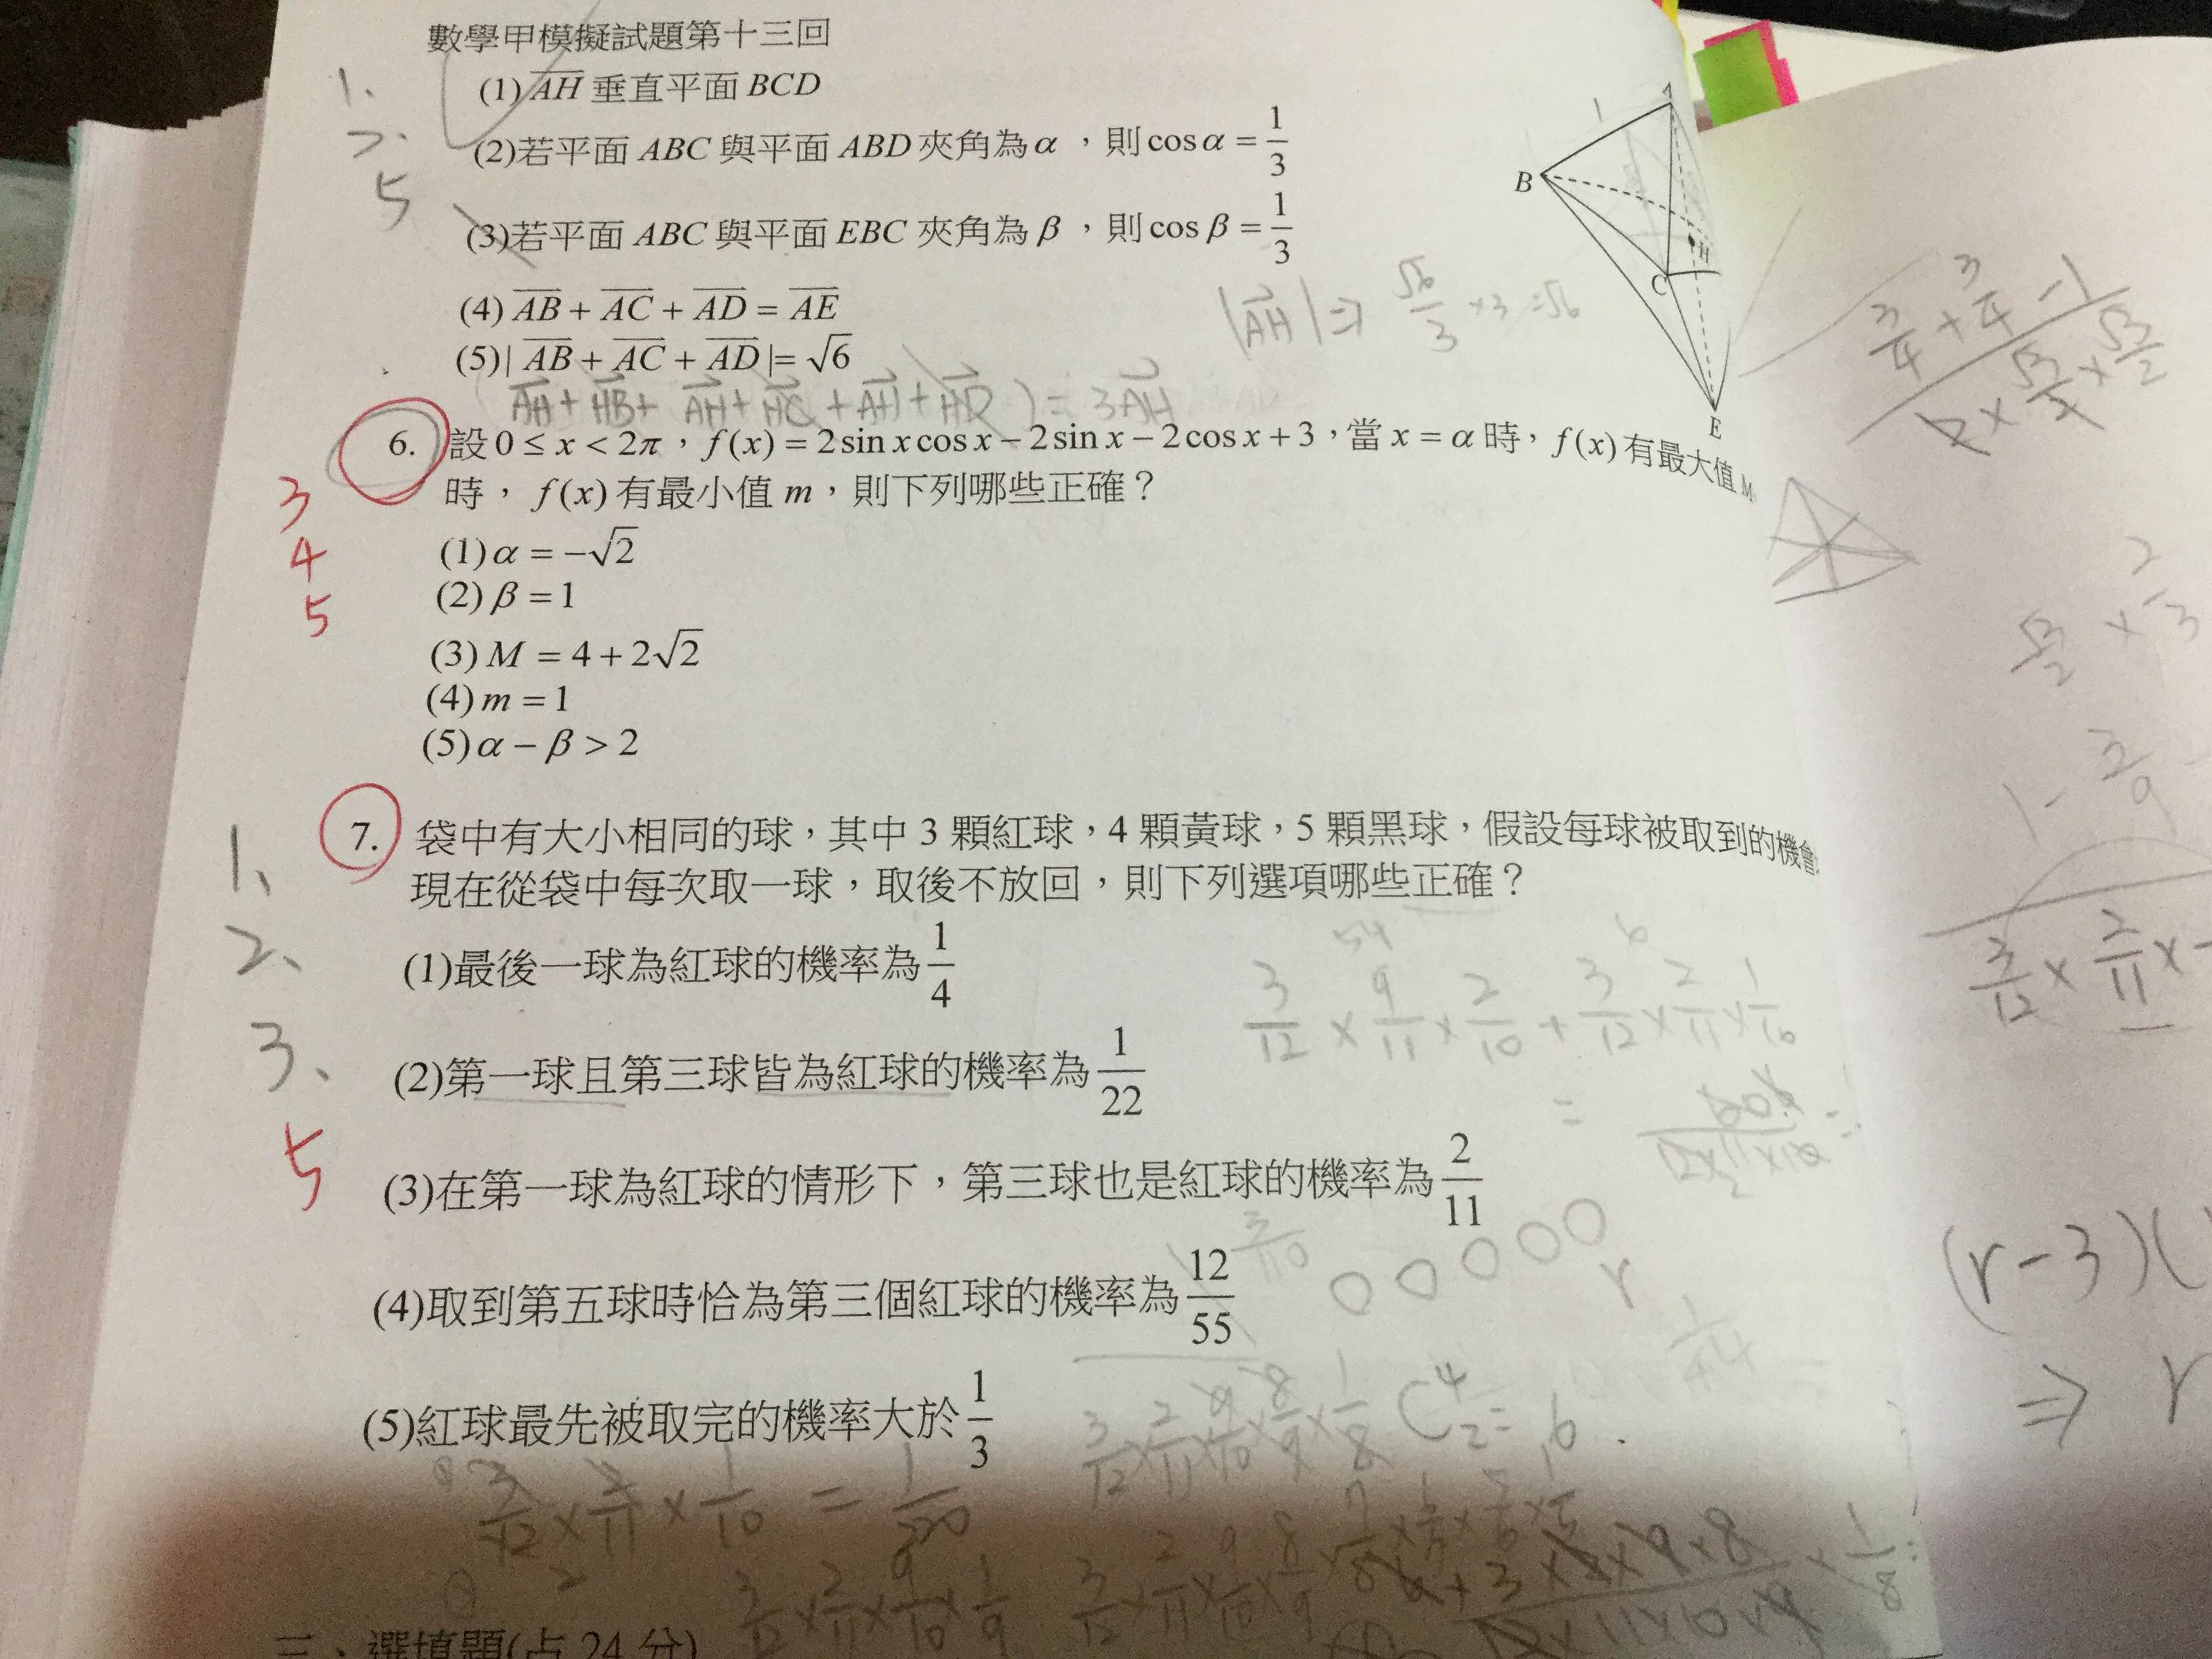 數學甲模擬試題第十三回
(1) AH 垂直平面 BCD
(2)若平面 ABC 與平面 ABD 夾角為α,則cosα = 1/3
(3)若平面 ABC 與平面 EBC 夾角為β,則cosβ = 1/3
(4) AB + AC + AD = AE
(5)| AB + AC + AD |= √6
1.
2.
5
A
B
C
H
E
|AH| ⇒ √6/3 ×3 =√6
AH + HB + AH + HC + AH + HD ) = 3AH
6. 設 0 ≤ x < 2π,f(x) = 2sin x cos x − 2sin x − 2cos x + 3,當 x = α 時,f(x) 有最大值 M
時,f(x) 有最小值 m,則下列哪些正確?
(1)α = −√2
(2)β = 1
(3)M = 4 + 2√2
(4)m = 1
(5)α − β > 2
3
4
5
7. 袋中有大小相同的球,其中 3 顆紅球,4 顆黃球,5 顆黑球,假設每球被取到的機會
現在從袋中每次取一球,取後不放回,則下列選項哪些正確?
(1)最後一球為紅球的機率為 1/4
(2)第一球且第三球皆為紅球的機率為 1/22
(3)在第一球為紅球的情形下,第三球也是紅球的機率為 2/11
(4)取到第五球時恰為第三個紅球的機率為 12/55
(5)紅球最先被取完的機率大於 1/3
1、
2、
3、
5
54 6
3/12 × 9/11 × 2/10 + 3/12 × 2/11 × 1/10
r
3/12 × 2/11 × 9/10 × 8/9 × 1/8 C 4 2 = 6
3/12 × 2/11 × 1/10 =
3/12 × 2/11 × 9/10 × 1/9
三、選填題(占 24 分)
3/4 + 3/4 − 1
2 × √3/2 × √3/2
√3/2 × 2/3
(r−3)(
⇒ r